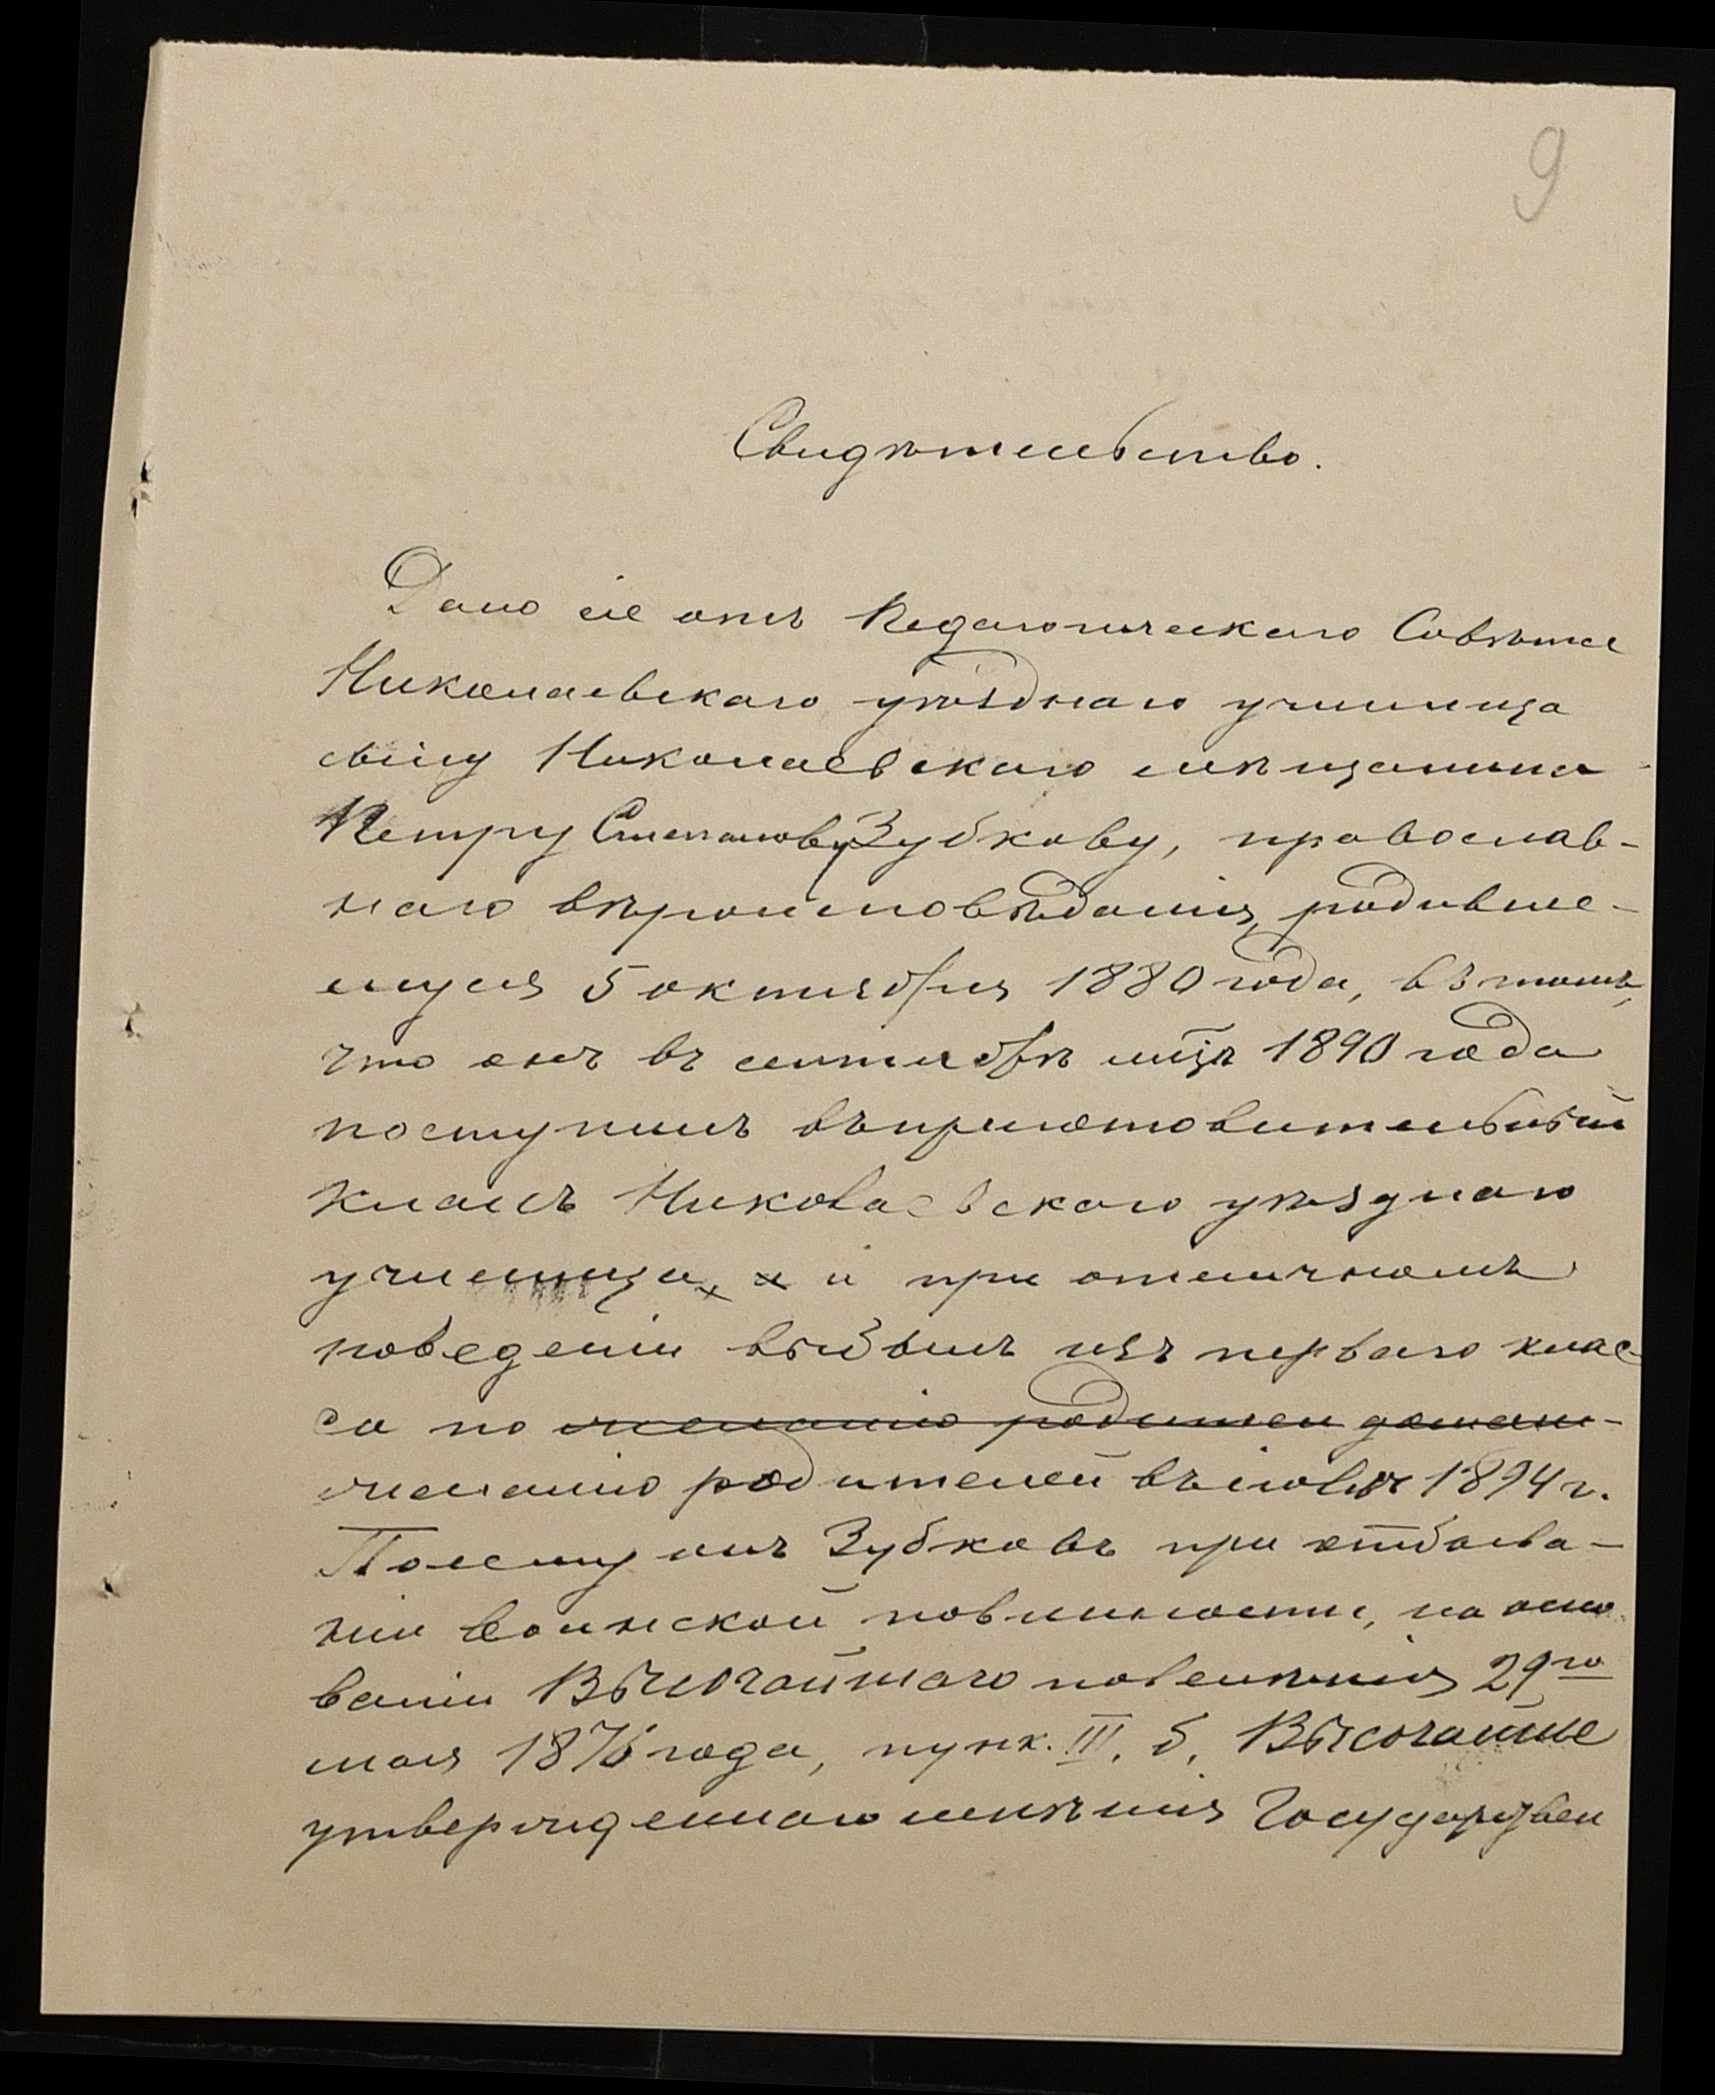 9
Свидѣтельство.
Дано сіе отъ Педагогическаго Совѣта
Николаевскаго уѣзднаго училища
сыну Николаевскаго мѣщанина
Петру Степанову Зубкову, православ-
наго вѣроисповѣданія, родивше-
муся 5 октября 1880 года, въ томъ,
что онъ въ сентябрѣ мцѣ 1890 года
поступилъ въ приготовительный
классъ Николаевскаго уѣзднаго
училища, и при отличномъ
поведеніи выбылъ изъ перваго клас-
са по желанію родителей домаш-
желанію родителей въ іюнѣ 1894 г.
Посему онъ Зубковъ при отбыва-
ніи воинской повинности, на осно
ваніи Высочайшаго повелѣнія 29го
мая 1876 года, пунк. III. б. Высочайше
утвержденнаго мнѣнія Государствен